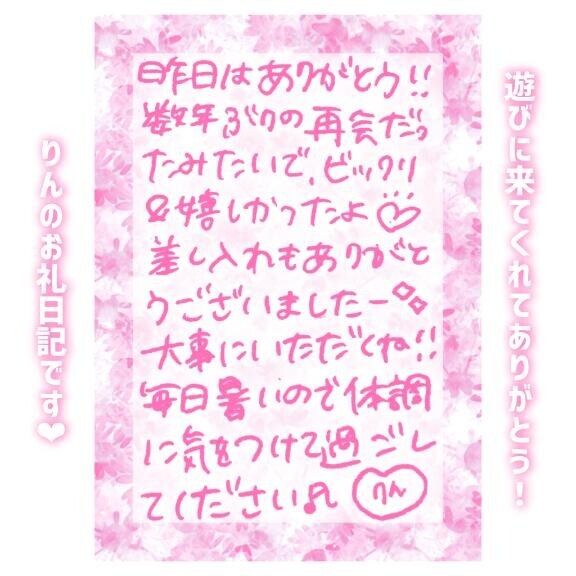 遊びに来てくれてありがとう！
昨日はありがとう!!
数年ぶりの再会だっ
たみたいで、ビックリ
&嬉しかったよ♡
差し入れもありがと
うございましたー
大事にいただくね!!
毎日暑いので体調
に気をつけて過ごし
てください♪
りん
りんのお礼日記です❤